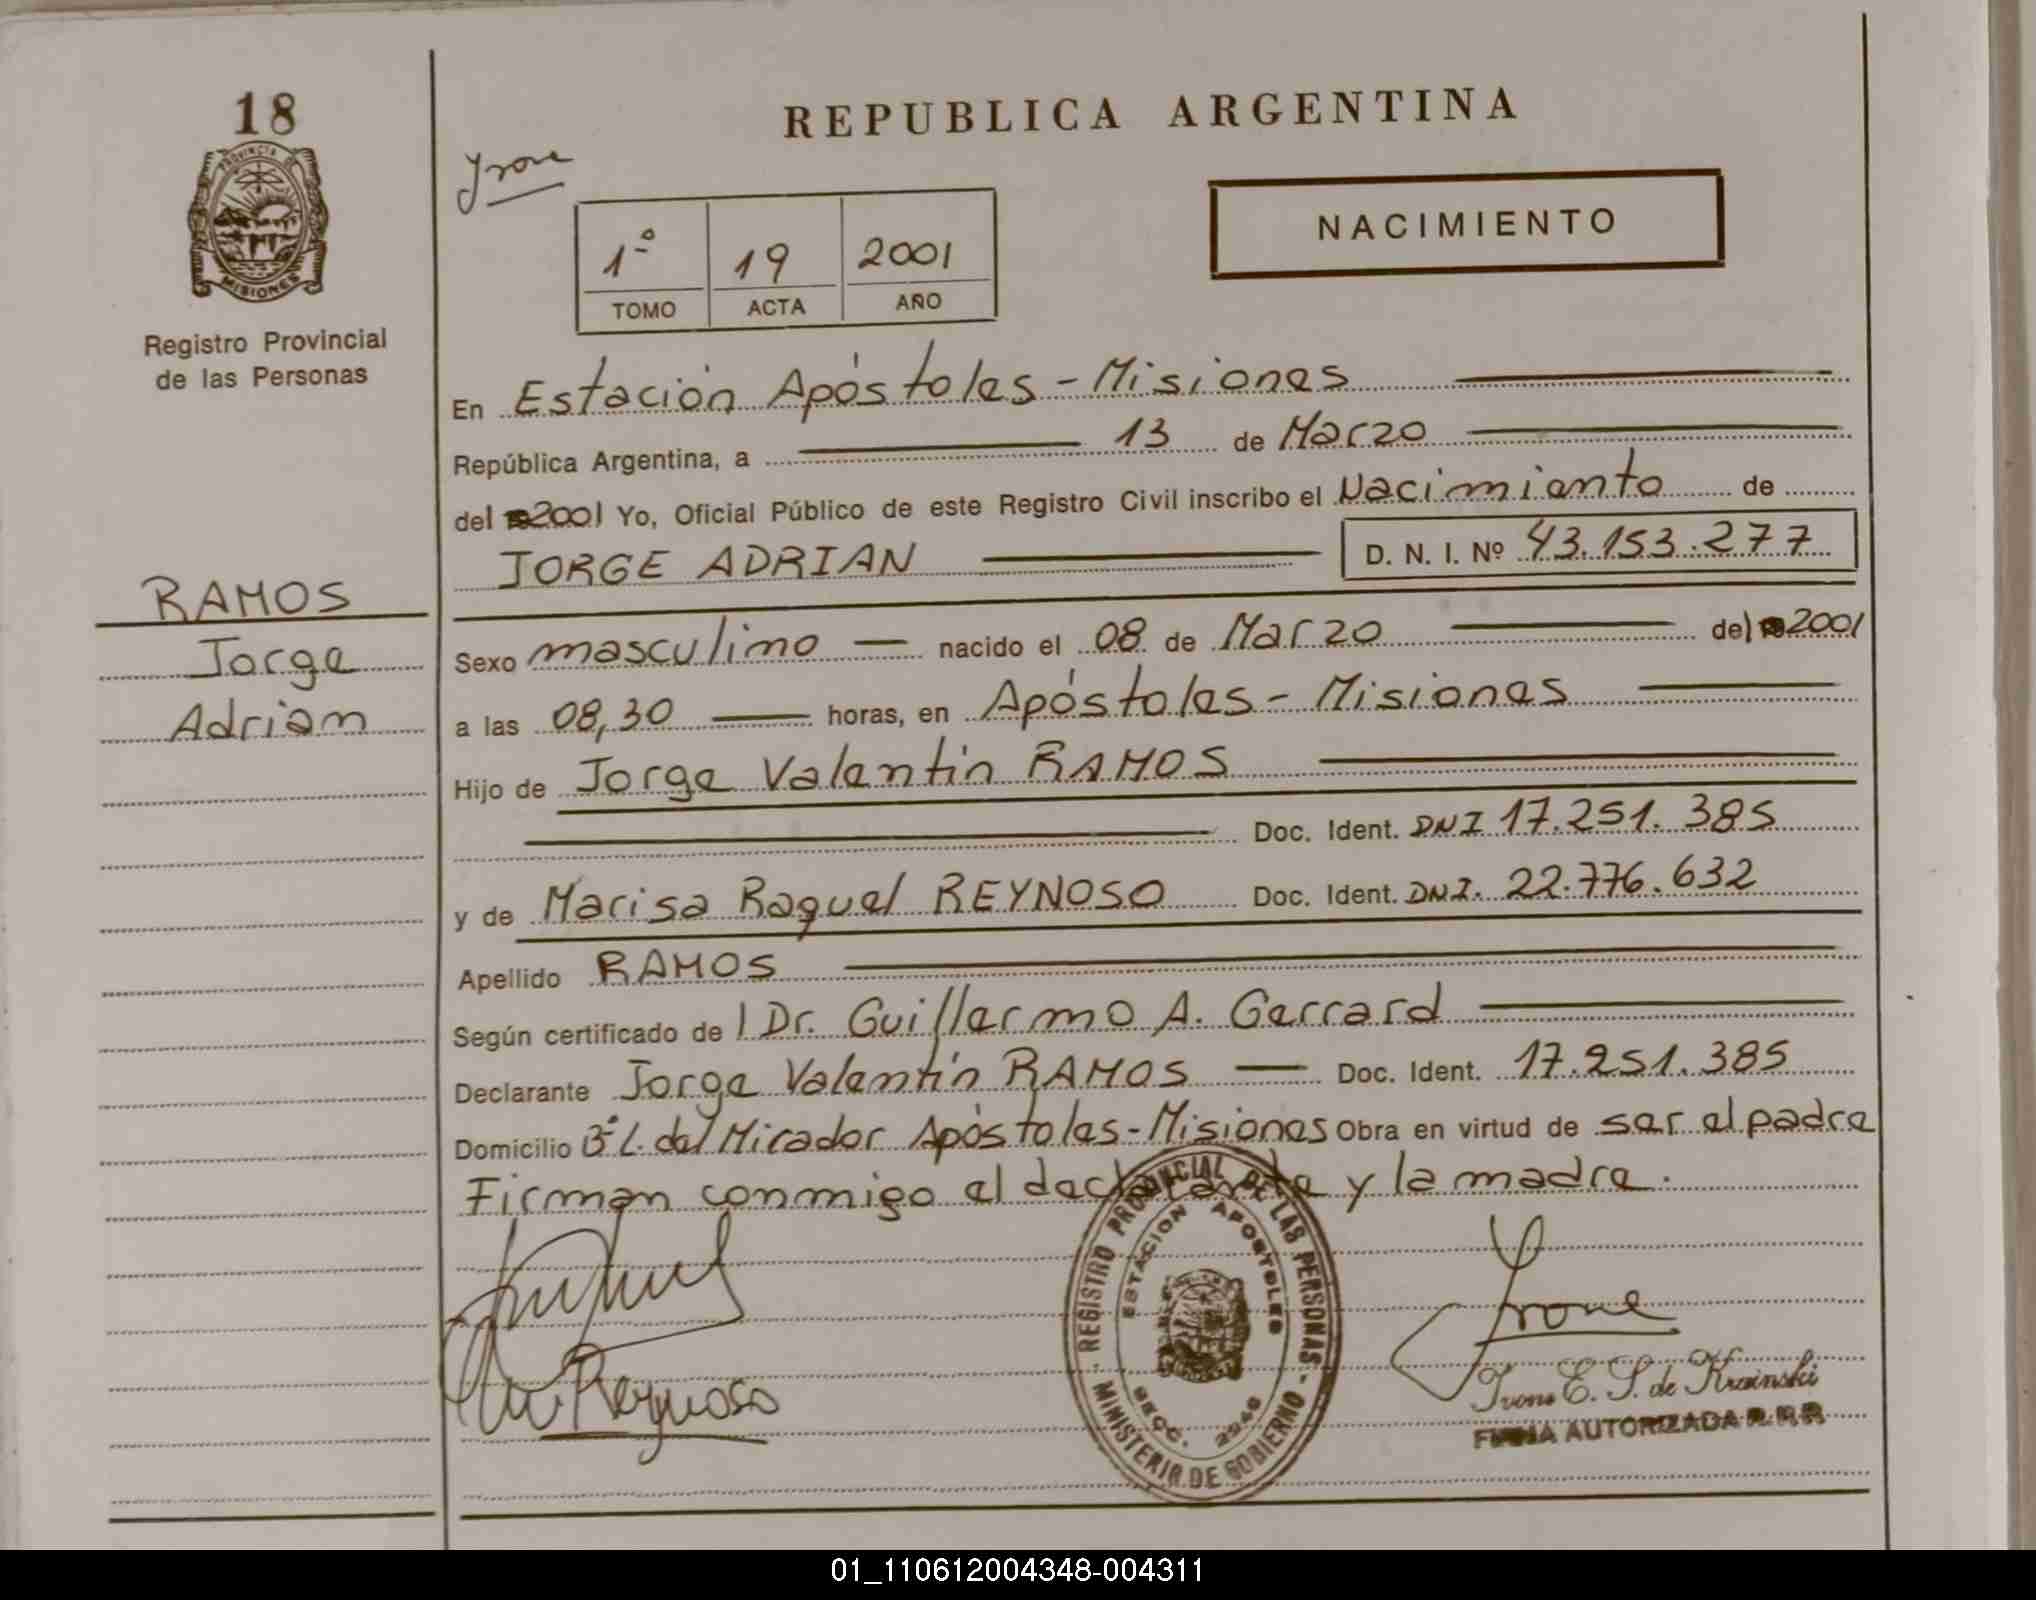 18
PROVINCIA DE
MISIONES
Registro Provincial
de las Personas
RAMOS
Jorge
Adrian
REPUBLICA ARGENTINA
Irone
NACIMIENTO
1º 19 2001
TOMO ACTA AÑO
En Estación Apóstoles - Misiones
República Argentina, a 13 de Marzo
del 2001 Yo, Oficial Público de este Registro Civil inscribo el Nacimiento de
JORGE ADRIAN D. N. I. Nº 43.153.277
Sexo masculino nacido el 08 de Marzo del 2001
a las 08,30 horas, en Apóstoles - Misiones
Hijo de Jorge Valentín RAMOS
Doc. Ident. DNI 17.251.385
y de Marisa Raquel REYNOSO Doc. Ident. DNI. 22.776.632
Apellido RAMOS
Según certificado de Dr. Guillermo A. Gerrard
Declarante Jorge Valentín RAMOS Doc. Ident. 17.251.385
Domicilio Bº L. del Mirador Apóstoles - Misiones Obra en virtud de ser el padre
Firman conmigo el declarante y la madre.
REGISTRO PROVINCIAL DE LAS PERSONAS
ESTACION APOSTOLES
SECC. 2946
MINISTERIO DE GOBIERNO
Reynoso
Irone
Irone E. S. de Krainski
FIRMA AUTORIZADA R.P.P.
01_110612004348-004311